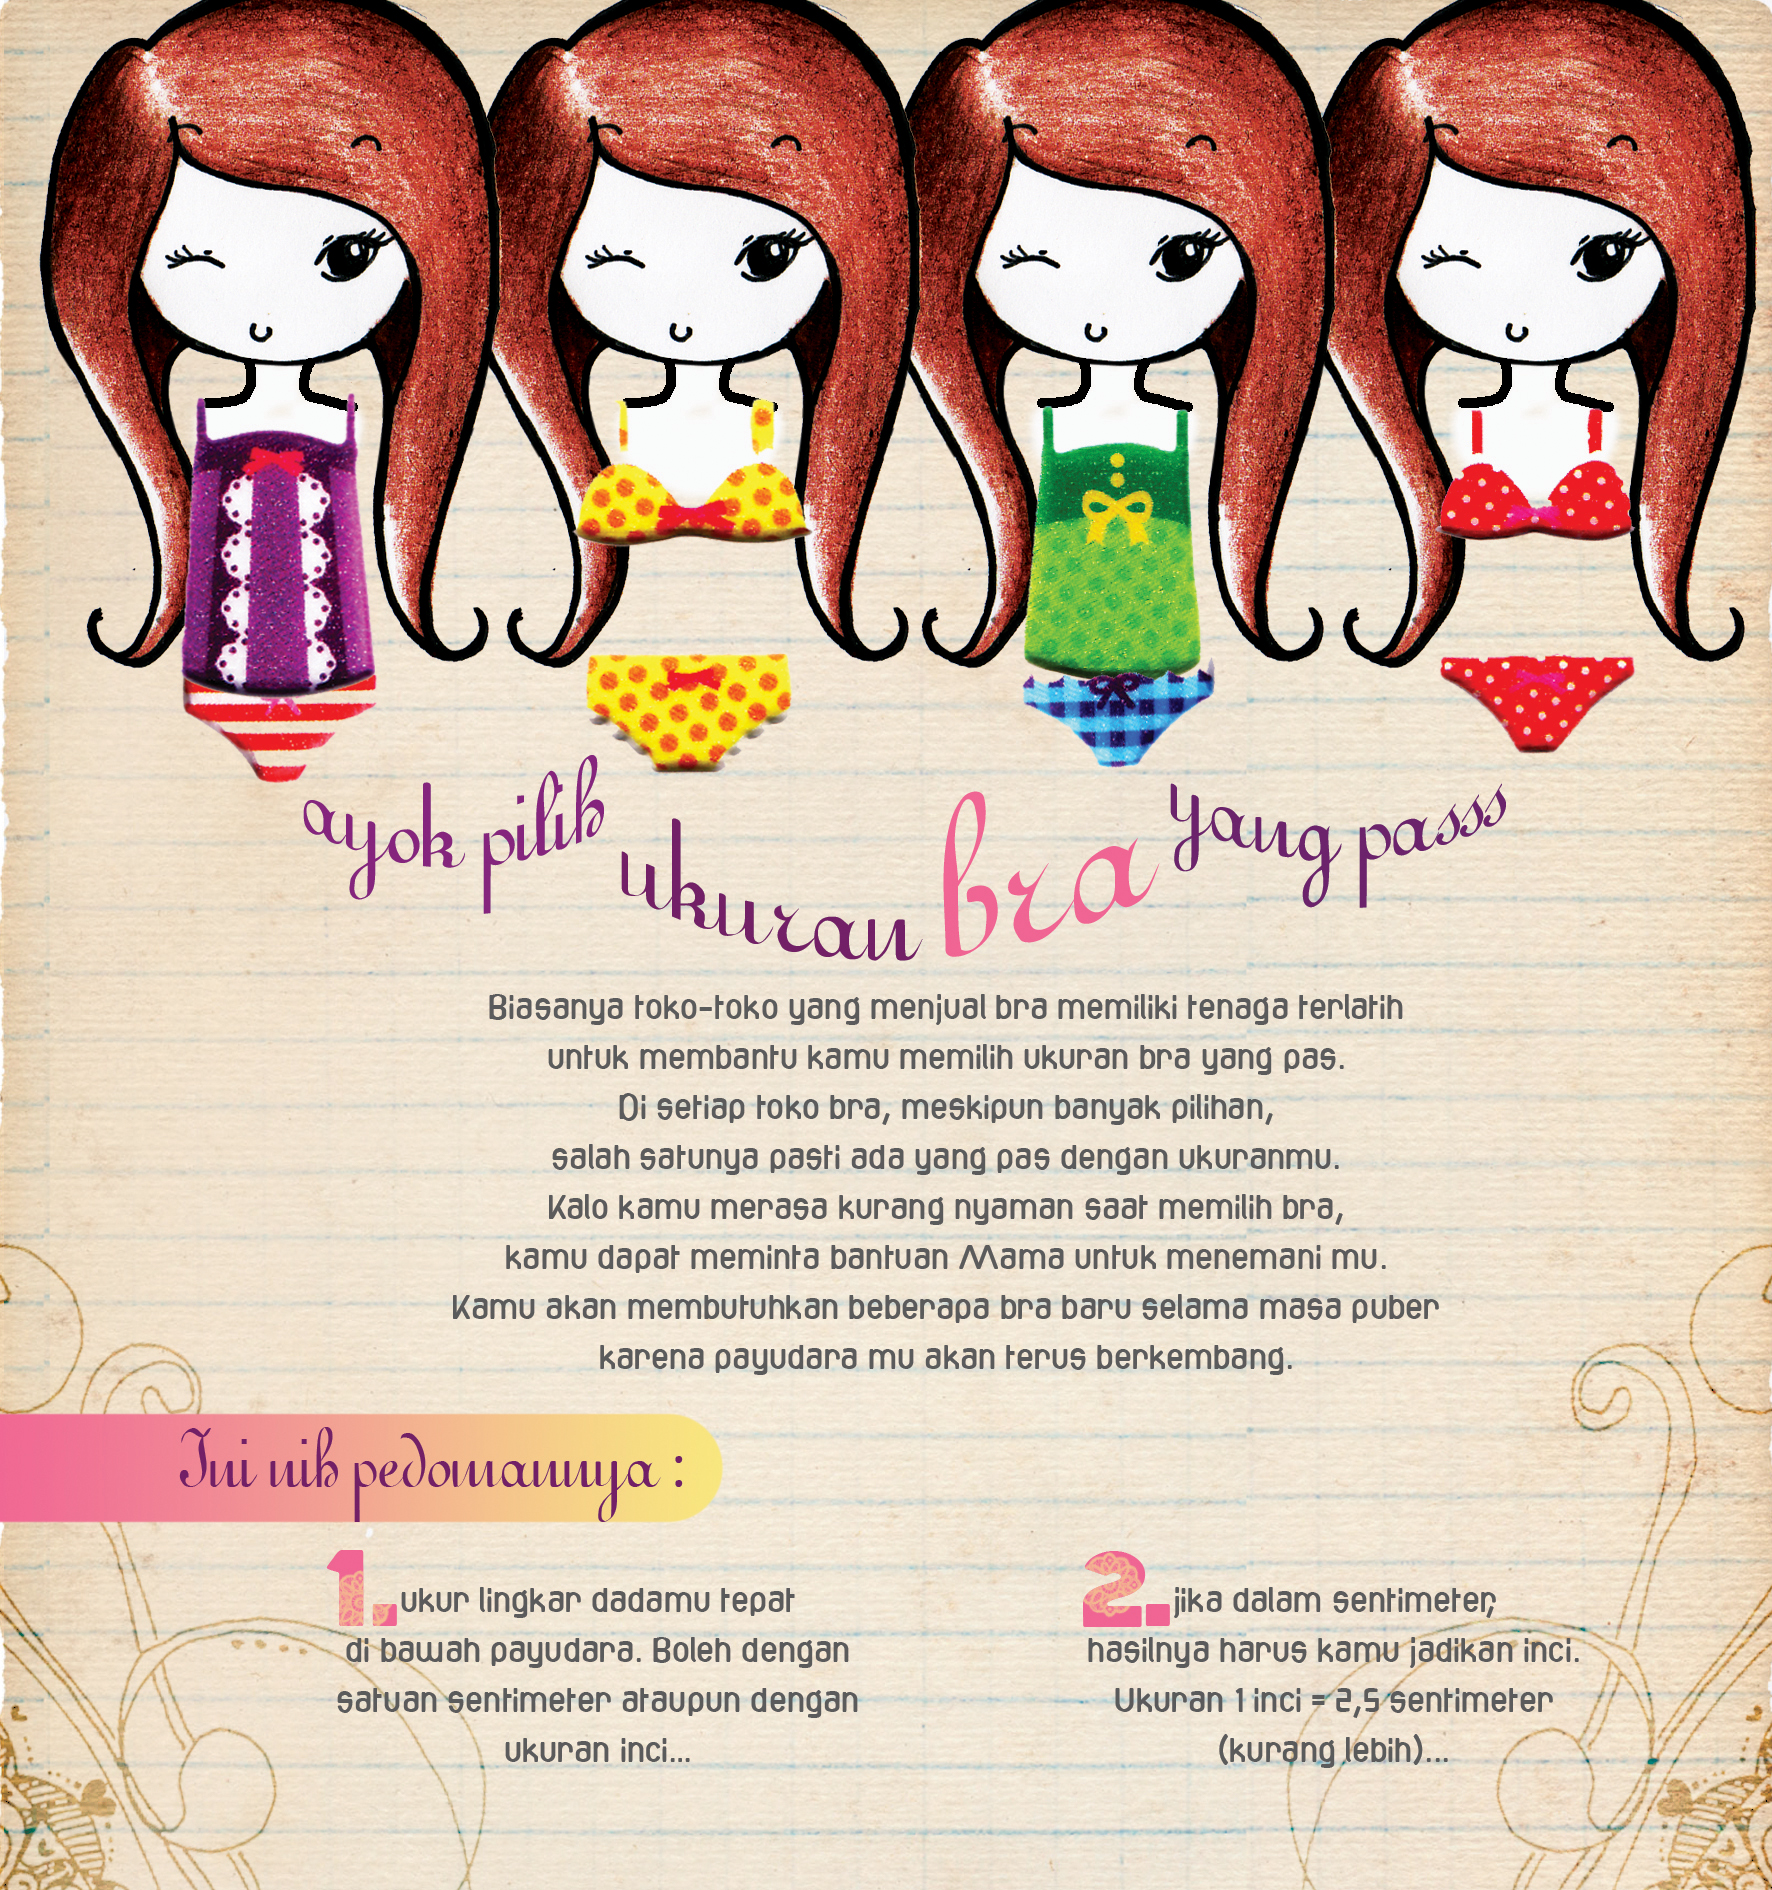 ayok pilih ukuran bra yang passs
Biasanya toko-toko yang menjual bra memiliki tenaga terlatih
untuk membantu kamu memilih ukuran bra yang pas.
Di setiap toko bra, meskipun banyak pilihan,
salah satunya pasti ada yang pas dengan ukuranmu.
Kalo kamu merasa kurang nyaman saat memilih bra,
kamu dapat meminta bantuan Mama untuk menemani mu.
Kamu akan membutuhkan beberapa bra baru selama masa puber
karena payudara mu akan terus berkembang.
Ini nih pedomannya :
1. ukur lingkar dadamu tepat
di bawah payudara. Boleh dengan
satuan sentimeter ataupun dengan
ukuran inci...
2. jika dalam sentimeter,
hasilnya harus kamu jadikan inci.
Ukuran 1 inci = 2,5 sentimeter
(kurang lebih)...